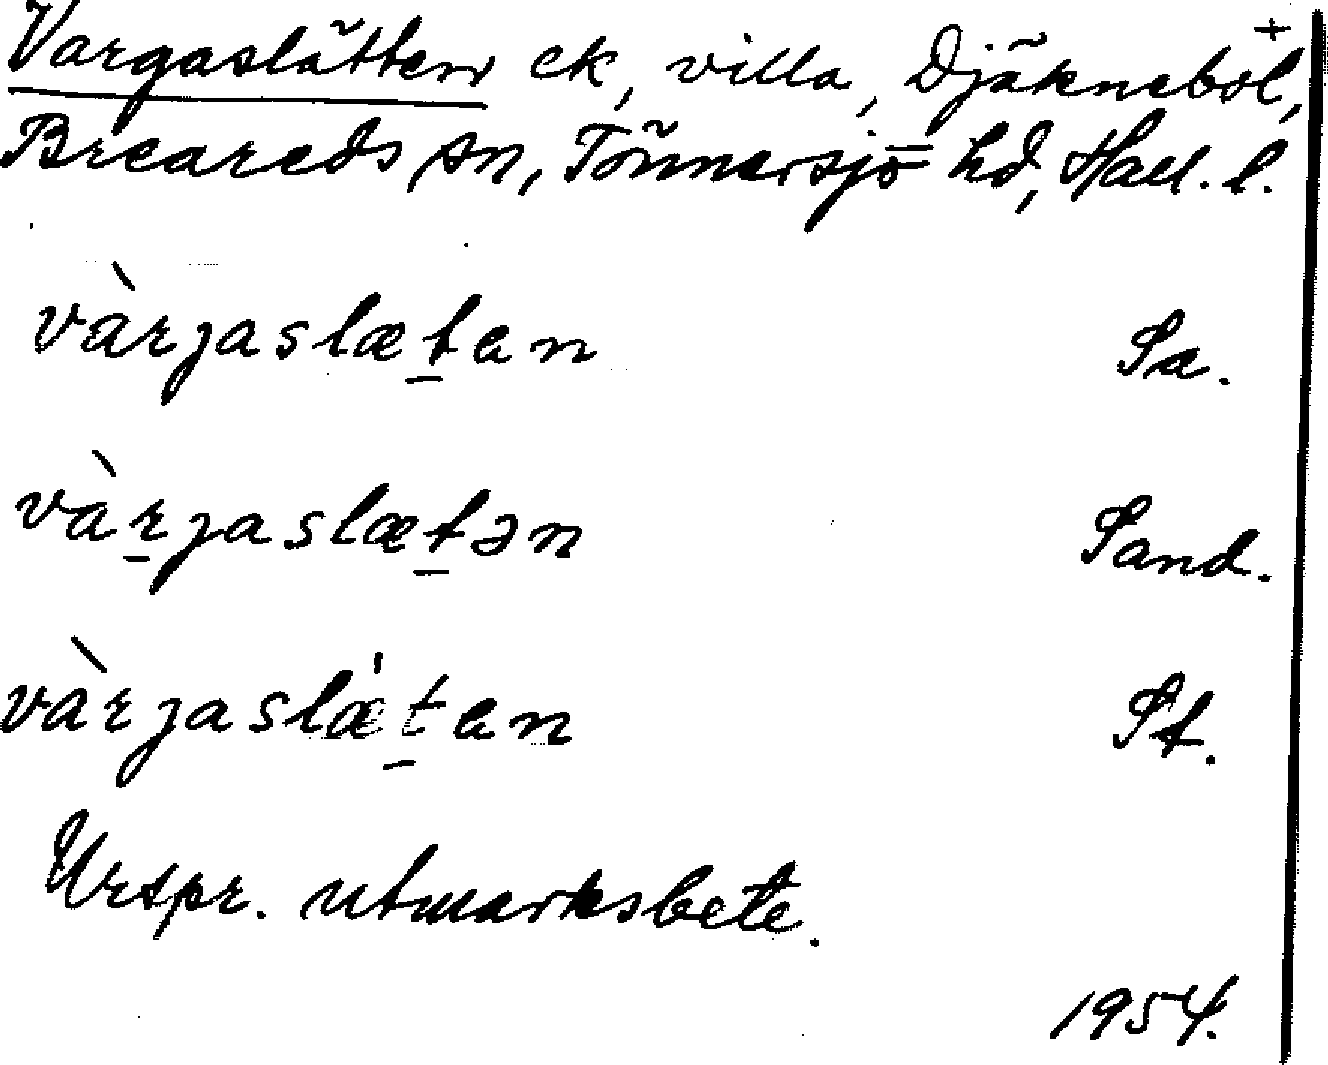 Vargaslätten ck, villa, Djäkneböl, +
Breareds sn, Tönnersjö hd, Hall. l.
vàrgaslæt̠an Sa.
vàr̠gaslæt̠ən Sand.
vàrgaslæ̍t̠an St.
Urspr. utmarksbete.
1954.